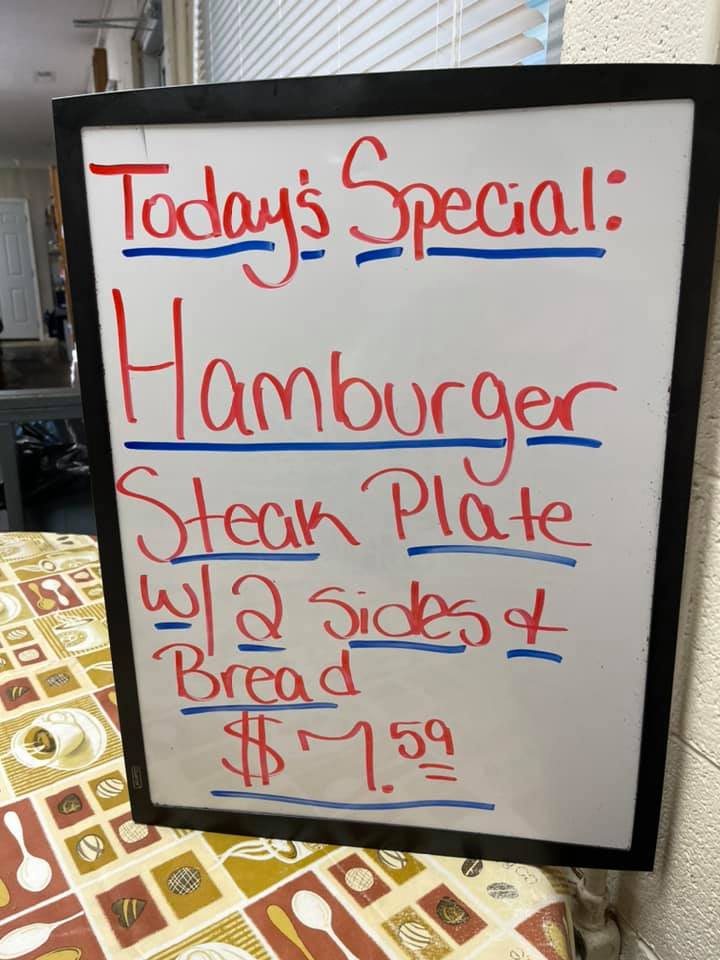 Today's Special:
Hamburger
Steak Plate
w/ 2 sides &
Bread
$7.59